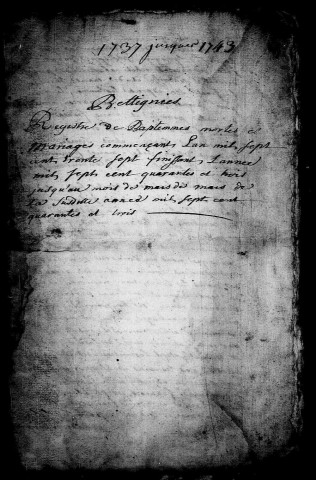 1737 jusques 1743
Bettignies
Registre de Baptemmes mortes et
Mariages commencant Lan mil sept
cent trente sept finissant Lannee
mil sept cent quarantes et trois
jusqu'au mois de mars de mars de
La suditte annee mil sept cent
quarantes et trois